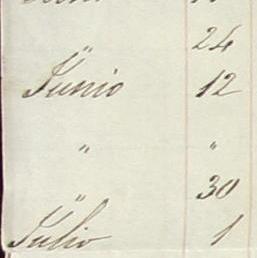 " 24
Junio 12
" "
" 30
Julio 1